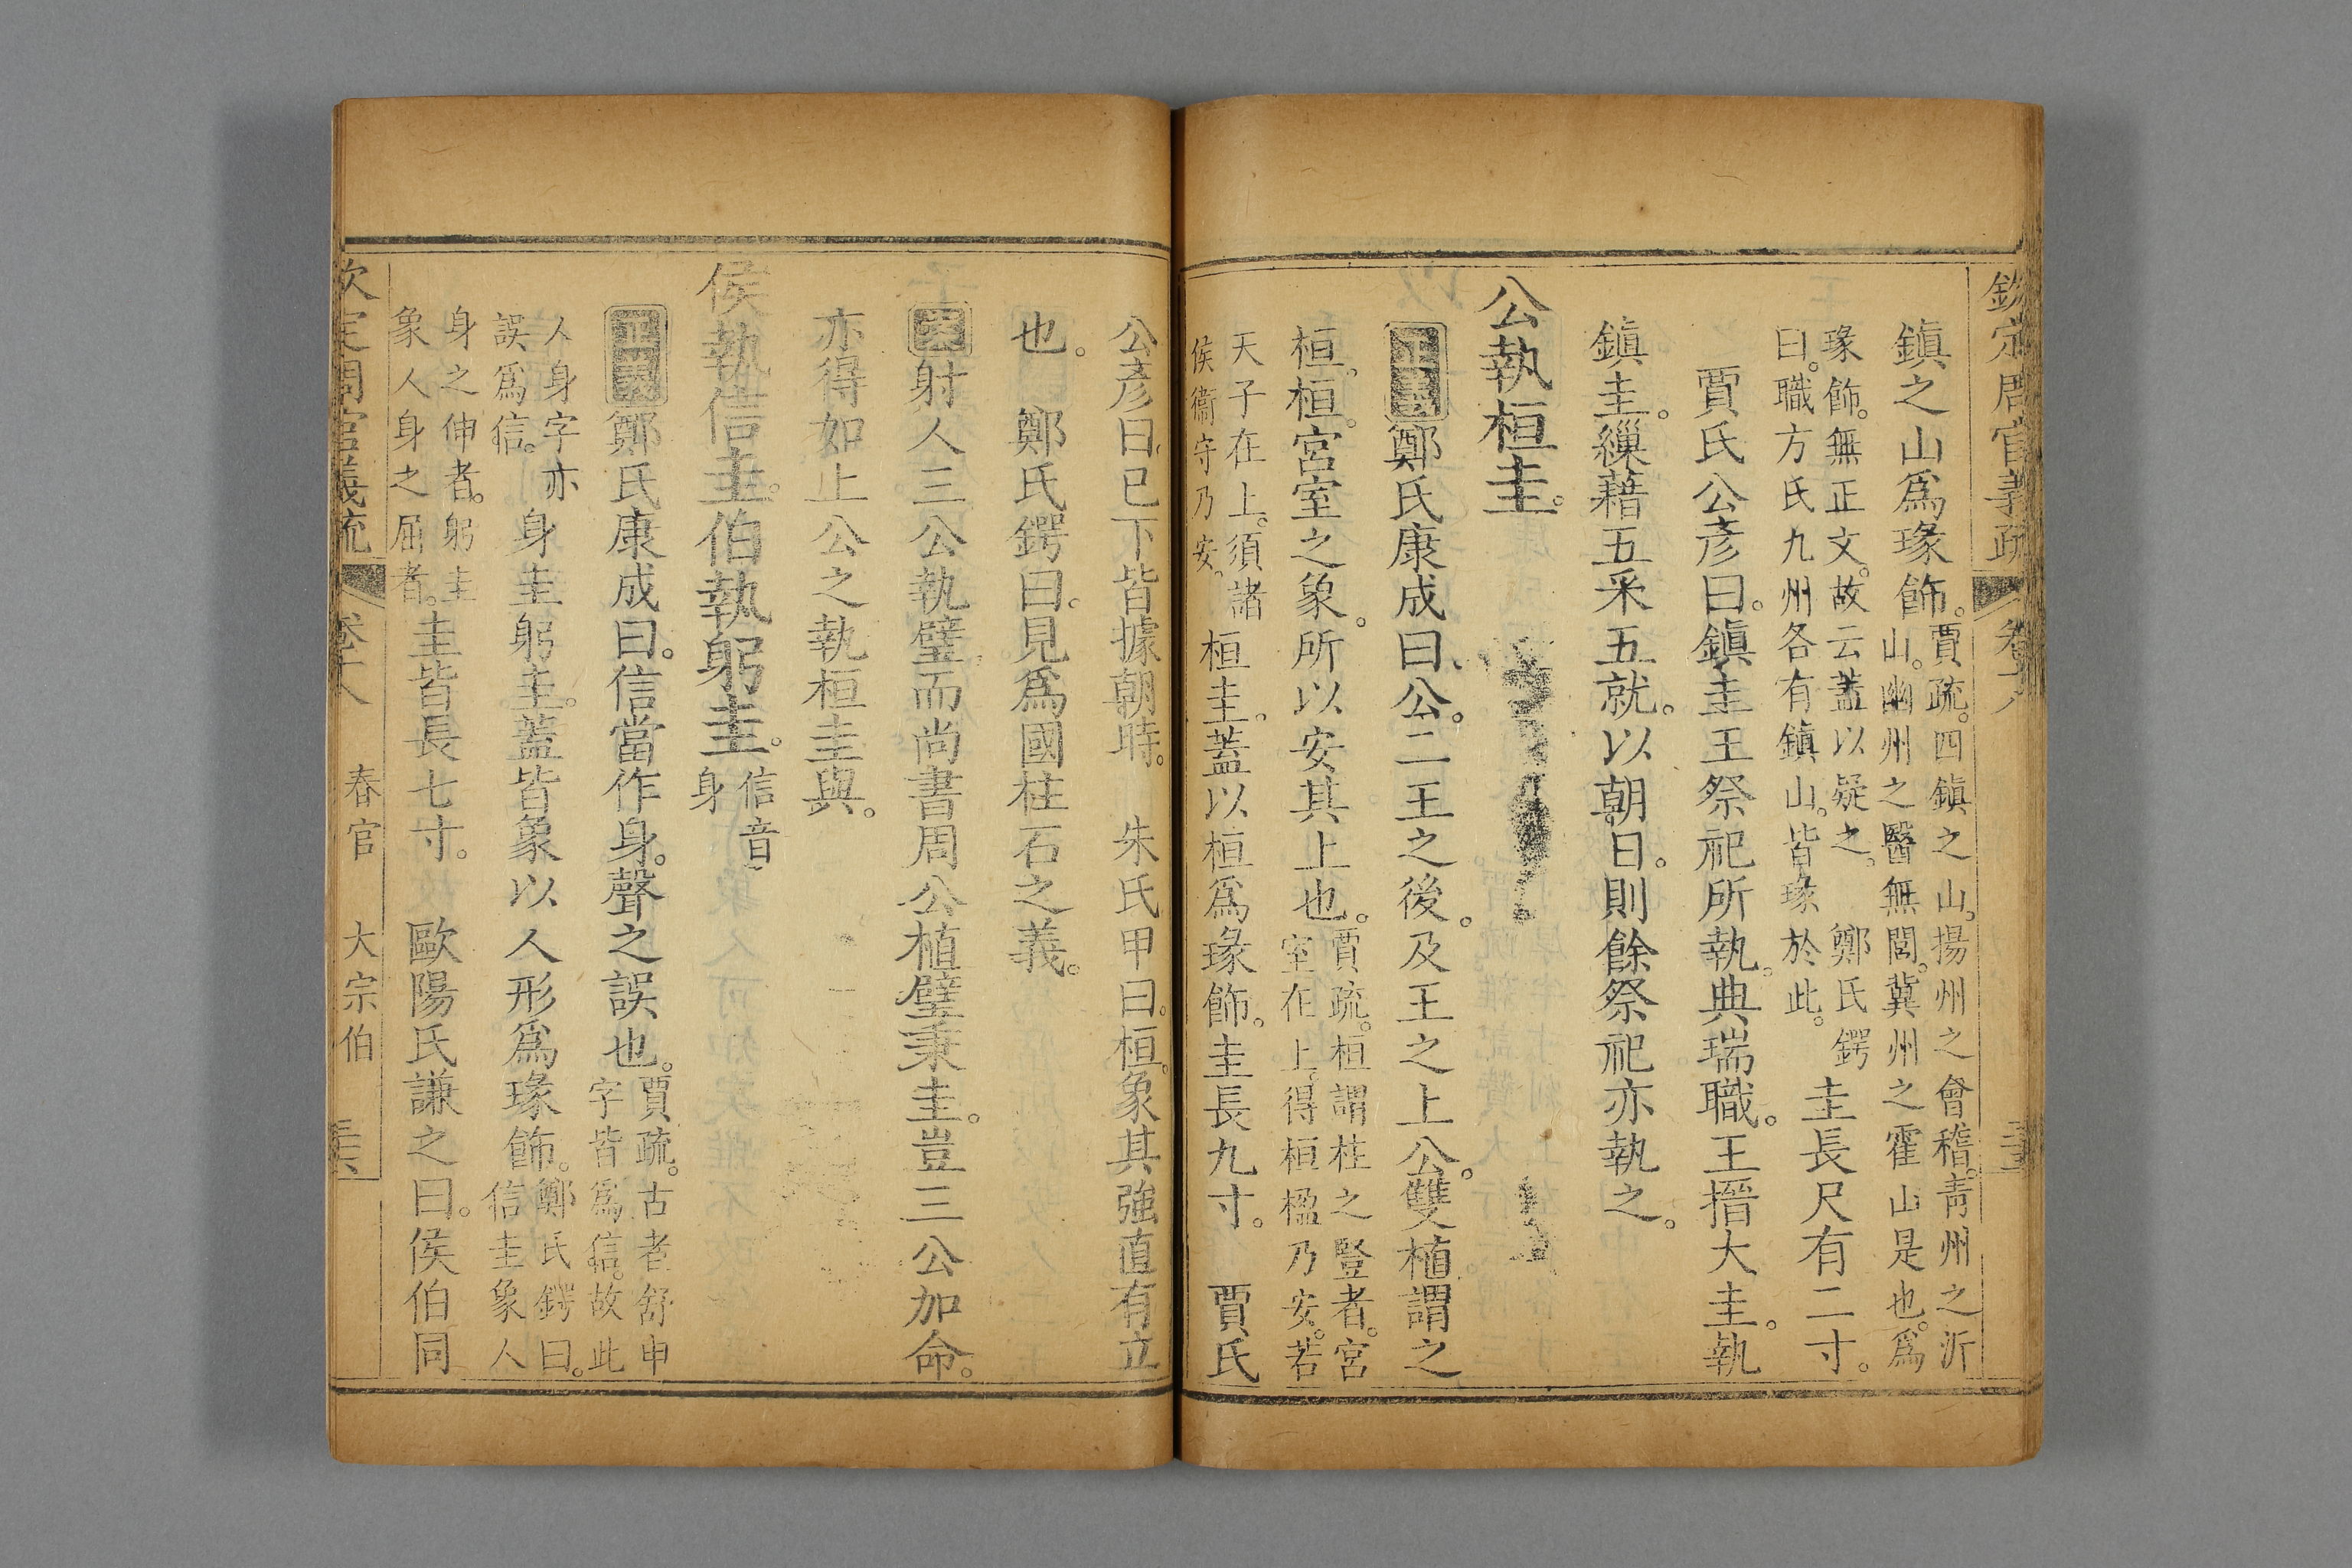 欽定周官義疏 卷十八
鎮之山爲瑑飾。賈疏。四鎮之山。揚州之會稽。靑州之沂
山。幽州之醫無閭。冀州之霍山是也。爲
瑑飾。無正文。故云蓋以疑之。鄭氏鍔
曰。職方氏九州各有鎮山。皆瑑於此。圭長尺有二寸。
賈氏公彥曰。鎮圭王祭祀所執。典瑞職。王搢大圭。執
鎮圭。繅藉五采五就。以朝日。則餘祭祀亦執之。
公執桓圭。
正義鄭氏康成曰。公。二王之後。及王之上公。雙植謂之
桓。桓。宮室之象。所以安其上也。賈疏。桓謂柱之豎者。宮
室在上。得桓楹乃安。若
天子在上。須諸
侯衞守乃安。桓圭。蓋以桓爲瑑飾。圭長九寸。 賈氏
公彥曰。已下皆據朝時。 朱氏申曰。桓。象其強直有立
也。 鄭氏鍔曰。見爲國柱石之義。
案射人三公執璧。而尚書周公植璧秉圭。豈三公加命。
亦得如上公之執桓圭與。
侯執信圭。伯執躬圭。信音
身
正義鄭氏康成曰。信當作身。聲之誤也。賈疏。古者舒申
字皆爲信。故此
人身字亦
誤爲信。身圭躬圭。蓋皆象以人形爲瑑飾。鄭氏鍔曰。
信圭象人
身之伸者。躬圭
象人身之屈者。圭皆長七寸。 歐陽氏謙之曰。侯伯同
欽定周官義疏 卷十八 春官 大宗伯